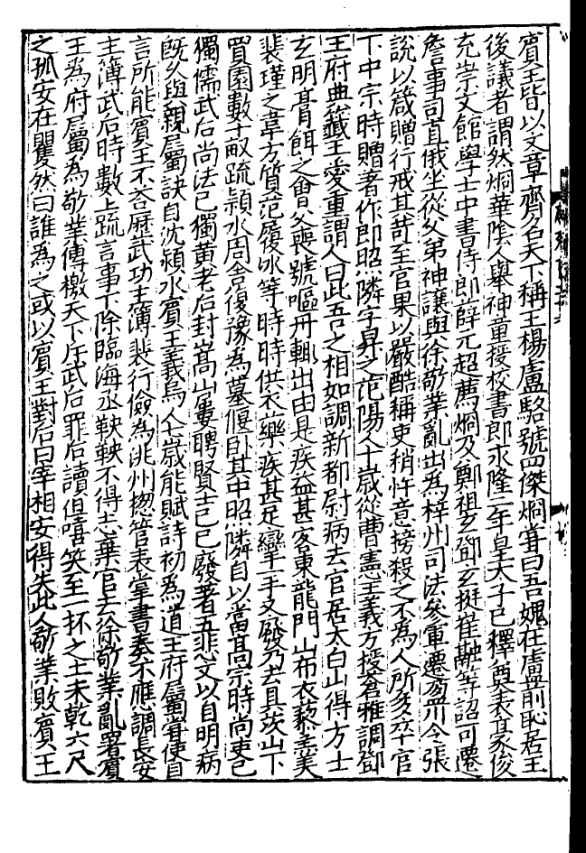 賓王皆以文章齊名天下稱王楊盧駱號四傑烱嘗曰吾媿在盧前恥居王
後議者謂然烱華陰人舉神童授校書郎永隆二年皇太子已釋奠表豪俊
充崇文館學士中書侍郎薛元超薦烱及鄭祖玄鄧玄挺崔融等詔可遷
詹事司直俄坐從父弟神讓與徐敬業亂出為梓州司法參軍遷盈川令張
說以箴贈行戒其苛至官果以嚴酷稱吏稍忤意搒殺之不為人所多卒官
下中宗時贈著作郎照隣字昇之范陽人十歲從曹憲王義方授蒼雅調鄧
王府典籤王愛重謂人曰此吾之相如調新都尉病去官居太白山得方士
玄明膏餌之會父喪號嘔丹輒出由是疾益甚客東龍門山布衣藜羹
裴瑾之韋方質范履冰等時時供衣藥疾甚足攣一手又廢乃去具茨山下
買園數十畝疏潁水周舍復豫為墓偃卧其中照隣自以當高宗時尚吏己
獨儒武后尚法己獨黃老后封嵩山屢聘賢士己已廢著五悲文以自明病
既久與親屬訣自沈潁水賓王義烏人七歲能賦詩初為道王府屬嘗使自
言所能賓王不荅歷武功主簿裴行儉為洮州揔管表掌書奏不應調長安
主簿武后時數上疏言事下除臨海丞鞅鞅不得志棄官去徐敬業亂署賓
王為府屬為敬業傳檄天下斥武后罪后讀但嘻笑至一抔之土未乾六尺
之孤安在矍然曰誰為之或以賓王對后曰宰相安得失此人敬業敗賓王